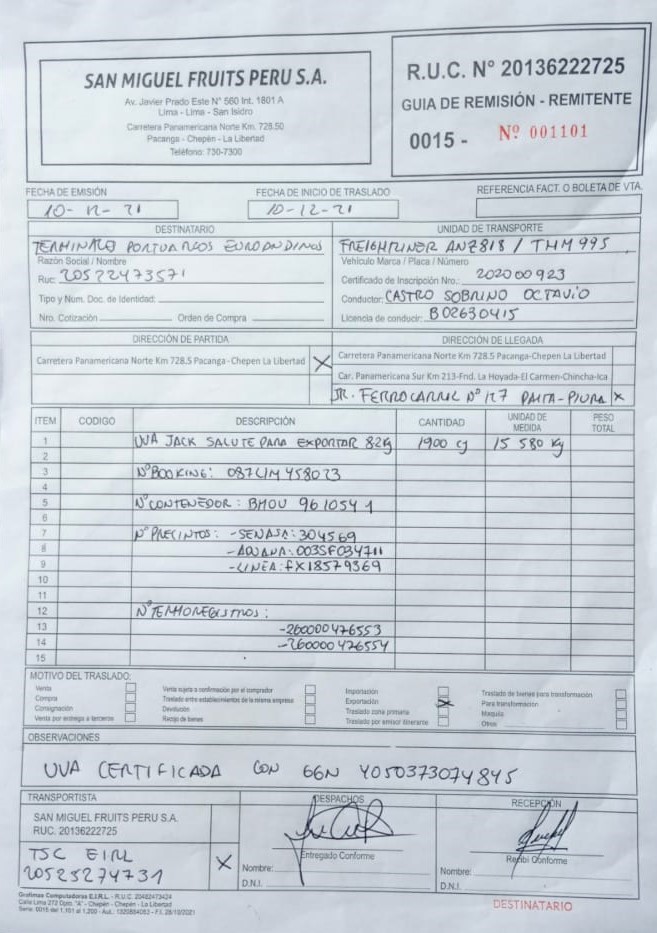 SAN MIGUEL FRUITS PERU S.A.
Av. Javier Prado Este N° 560 Int. 1801 A
Lima - Lima - San Isidro
Carretera Panamericana Norte Km. 728.50
Pacanga - Chepén - La Libertad
Teléfono: 730-7300
R.U.C. N° 20136222725
GUIA DE REMISIÓN - REMITENTE
0015 - Nº 001101
FECHA DE EMISIÓN
10-12-21
FECHA DE INICIO DE TRASLADO
10-12-21
REFERENCIA FACT. O BOLETA DE VTA.
DESTINATARIO
TERMINALES PORTUARIOS EUROANDINOS
Razón Social / Nombre
Ruc: 20522473571
Tipo y Num. Doc. de Identidad:
Nro. Cotización Orden de Compra
UNIDAD DE TRANSPORTE
FREIGHLINER ANZ818 / THM995
Vehículo Marca / Placa / Número
Certificado de Inscripción Nro.: 202000923
Conductor: CASTRO SOBRINO OCTAVIO
Licencia de conducir: B02630415
DIRECCIÓN DE PARTIDA
Carretera Panamericana Norte Km 728.5 Pacanga-Chepen La Libertad X
DIRECCIÓN DE LLEGADA
Carretera Panamericana Norte Km 728.5 Pacanga-Chepen La Libertad
Car. Panamericana Sur Km 213-Fnd. La Hoyada-El Carmen-Chincha-Ica
JR. FERROCARRIL Nº 127 PAITA-PIURA X
ITEM CODIGO DESCRIPCIÓN CANTIDAD UNIDAD DE MEDIDA PESO TOTAL
1 UVA JACK SALUTE PARA EXPORTAR 8.2KG 1900 CJ 15 580 Kg
2
3 NºBOOKING: 087LIM458023
4
5 NºCONTENEDOR: BMOU 961054 1
6
7 NºPRECINTOS: -SENASA: 304569
8 -ADUANA: 003SF034711
9 -LINEA: FX18579369
10
11
12 NºTERMOREGISTROS:
13 -260000476553
14 -260000476554
15
MOTIVO DEL TRASLADO:
Venta
Compra
Consignación
Venta por entrega a terceros
Venta sujeta a confirmación por el comprador
Traslado entre establecimientos de la misma empresa
Devolución
Recojo de bienes
Importación
Exportación X
Traslado zona primaria
Traslado por emisor itinerante
Traslado de bienes para transformación
Para transformación
Maquila
Otros
OBSERVACIONES
UVA CERTIFICADA CON GGN 4050373074845
TRANSPORTISTA
SAN MIGUEL FRUITS PERU S.A.
RUC. 20136222725
TSC EIRL
20525274731 X
DESPACHOS
Entregado Conforme
Nombre:
D.N.I.
RECEPCIÓN
Recibi Conforme
Nombre:
D.N.I.
Grafimas Computadoras E.I.R.L. - R.U.C. 20482473424
Calle Lima 272 Dpto. "A" - Chepén - Chepén - La Libertad
Serie: 0015 del 1,101 al 1,200 - Aut.: 1320884063 - F.I. 28/10/2021
DESTINATARIO